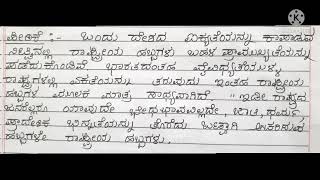 ಪೀಠಿಕೆ :- ಒಂದು ದೇಶದ ಐಕ್ಯತೆಯನ್ನು ಕಾಪಾಡುವ
ನಿಟ್ಟಿನಲ್ಲಿ ರಾಷ್ಟ್ರೀಯ ಹಬ್ಬಗಳು ಬಹಳ ಪ್ರಾಮುಖ್ಯತೆಯನ್ನು
ಪಡೆದುಕೊಂಡಿವೆ ಭಾರತದಂತಹ ವೈವಿಧ್ಯತೆಯುಳ್ಳ
ರಾಷ್ಟ್ರಗಳಲ್ಲಿ ಏಕತೆಯನ್ನು ತರುವುದು ಇಂತಹ ರಾಷ್ಟ್ರೀಯ
ಹಬ್ಬಗಳ ಮೂಲಕ ಮಾತ್ರ ಸಾಧ್ಯವಾಗಿದೆ "ಇಡೀ ರಾಷ್ಟ್ರದ
ಜನರೆಲ್ಲರೂ ಯಾವುದೇ ಭೇಧಭಾವವಿಲ್ಲದೇ, ಜಾತಿ, ಧರ್ಮ,
ಪ್ರಾದೇಶಿಕ ಭಿನ್ನತೆಯನ್ನು ತೊರೆದು ಒಟ್ಟಾಗಿ ಆಚರಿಸುವ
ಹಬ್ಬಗಳೇ ರಾಷ್ಟ್ರೀಯ ಹಬ್ಬಗಳು.